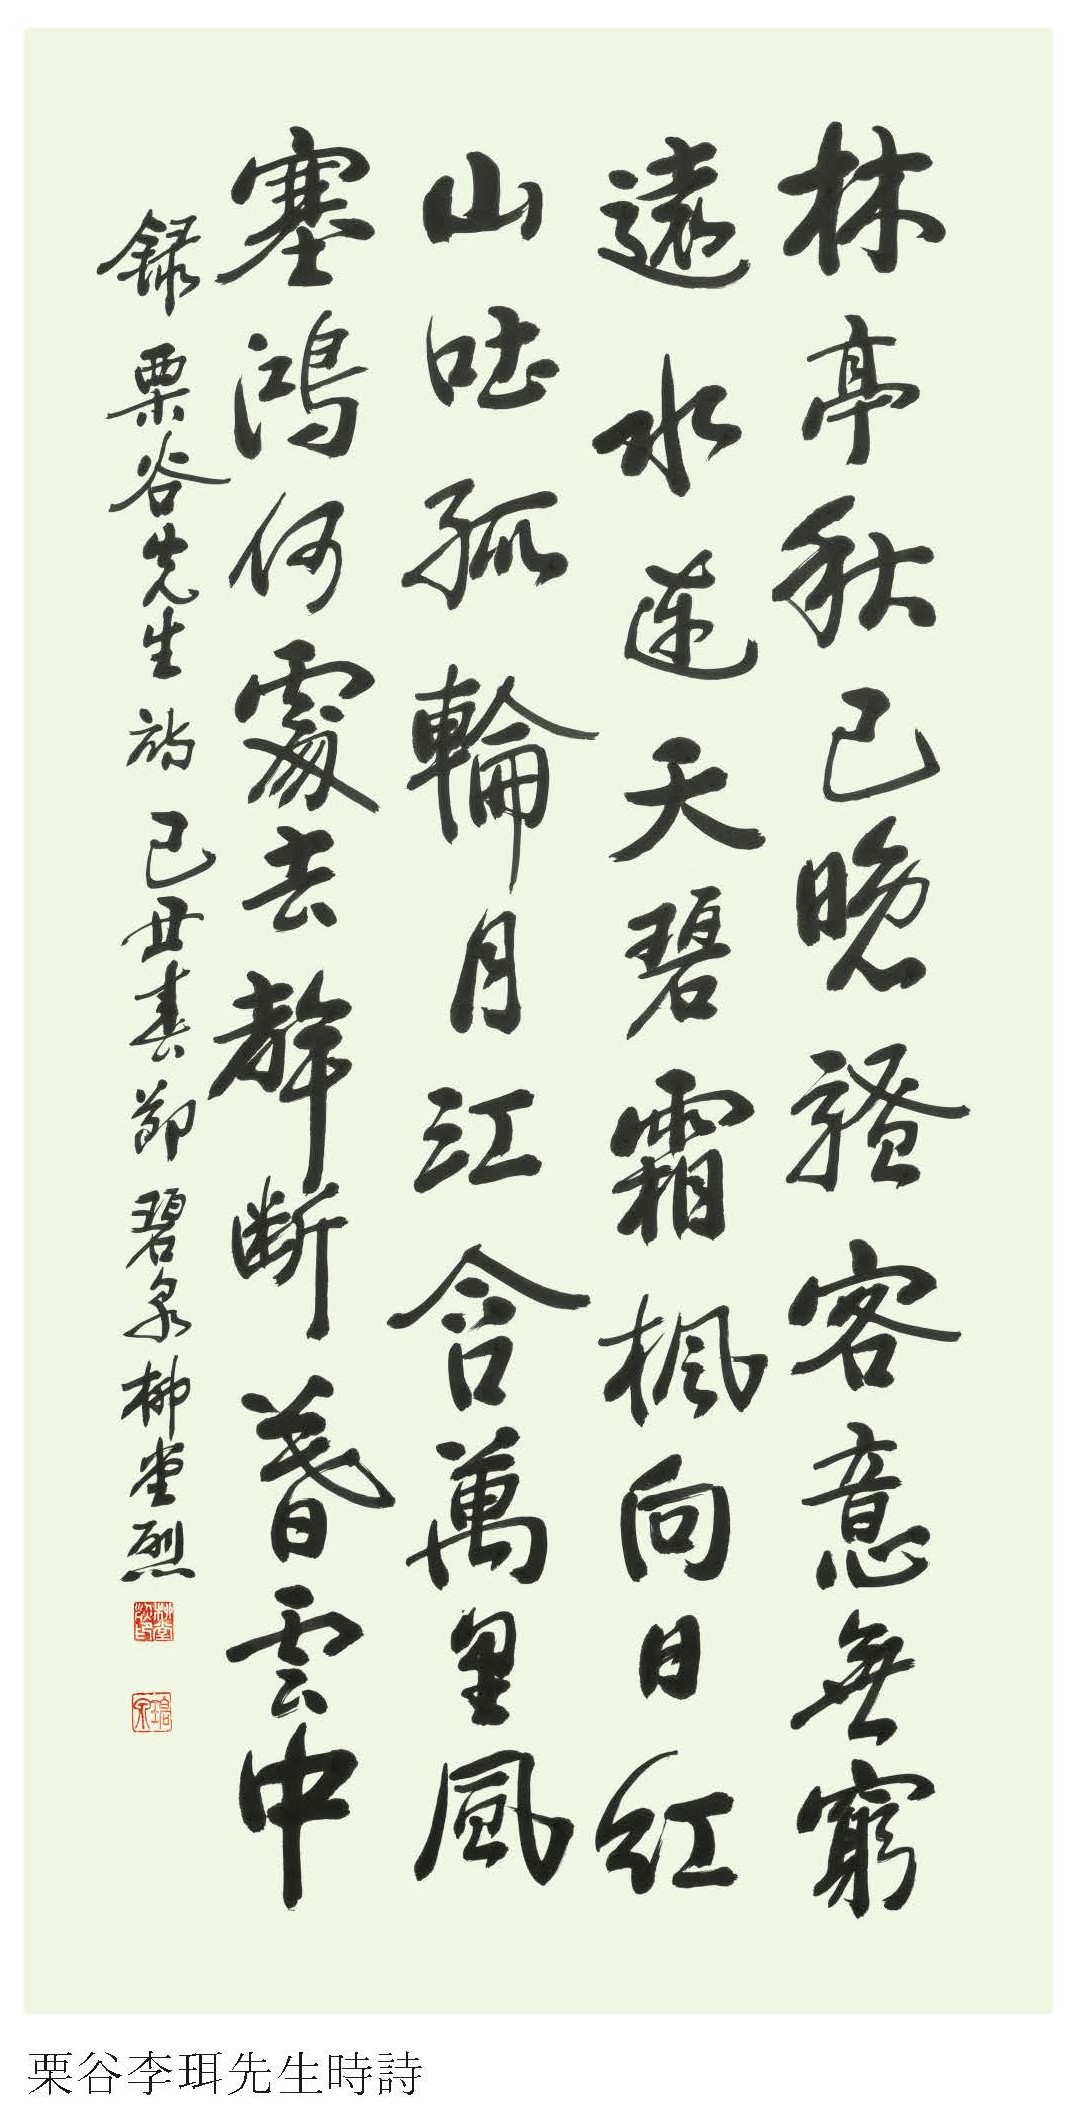 林亭秋已晚騷客意無窮
遠水連天碧霜楓向日紅
山吐孤輪月江含萬里風
塞鴻何處去聲断暮雲中
錄栗谷先生詩己丑春節碧泉柳堂烈
栗谷李珥先生時詩